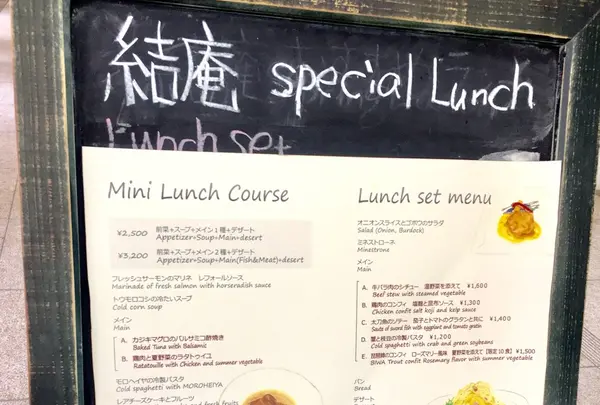 結庵 special Lunch
Lunch set
Mini Lunch Course
¥2,500 前菜+スープ+メイン1種+デザート
Appetizer+Soup+Main+desert
¥3,200 前菜+スープ+メイン2種+デザート
Appetizer+Soup+Main(Fish&Meat)+desert
フレッシュサーモンのマリネ レフォールソース
Marinade of fresh salmon with horseradish sauce
トウモロコシの冷たいスープ
Cold corn soup
メイン
Main
A. カジキマグロのバルサミコ酢焼き
Baked Tuna with Balsamic
B. 鶏肉と夏野菜のラタトゥイユ
Ratatouille with Chicken and summer vegetable
モロヘイヤの冷製パスタ
Cold spaghetti with MOROHEIYA
レアチーズケーキとフルーツ
and fresh fruits
Lunch set menu
オニオンスライスとゴボウのサラダ
Salad (Onion, Burdock)
ミネストローネ
Minestrone
メイン
Main
A. 牛バラ肉のシチュー 温野菜を添えて ¥1,600
Beef stew with steamed vegetable
B. 鶏肉のコンフィ 塩麹と昆布ソース ¥1,300
Chicken confit salt koji and kelp sauce
C. 太刀魚のソテー 茄子とトマトのグラタンと共に ¥1,400
Saute of sword fish with eggplant and tomato gratin
D. 蟹と枝豆の冷製パスタ ¥1,200
Cold spaghetti with crab and green soybeans
E. 琵琶鱒のコンフィ ローズマリー風味 夏野菜を添えて【限定10食】 ¥1,500
BIWA Trout confit Rosemary flavor with summer vegetable
パン
Bread
デザート